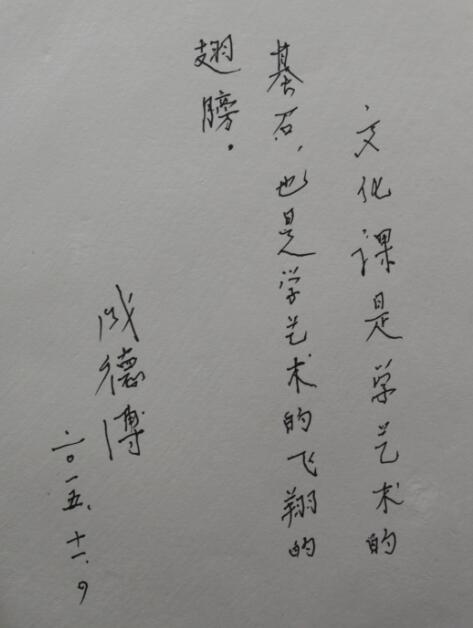 文化课是学艺术的
基石,也是学艺术的飞翔的
翅膀.
成德博
二〇一五.十一.9